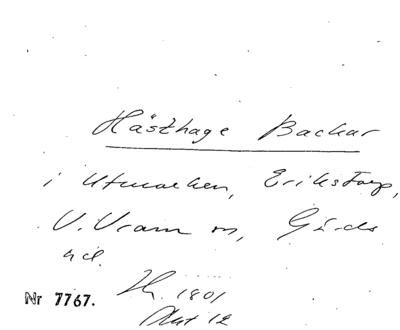 Hästhage Backar
i Utmarken, Erikstorp,
V. Vram sn, Gärds
hd.
Nr 7767.
1801
Akt 12